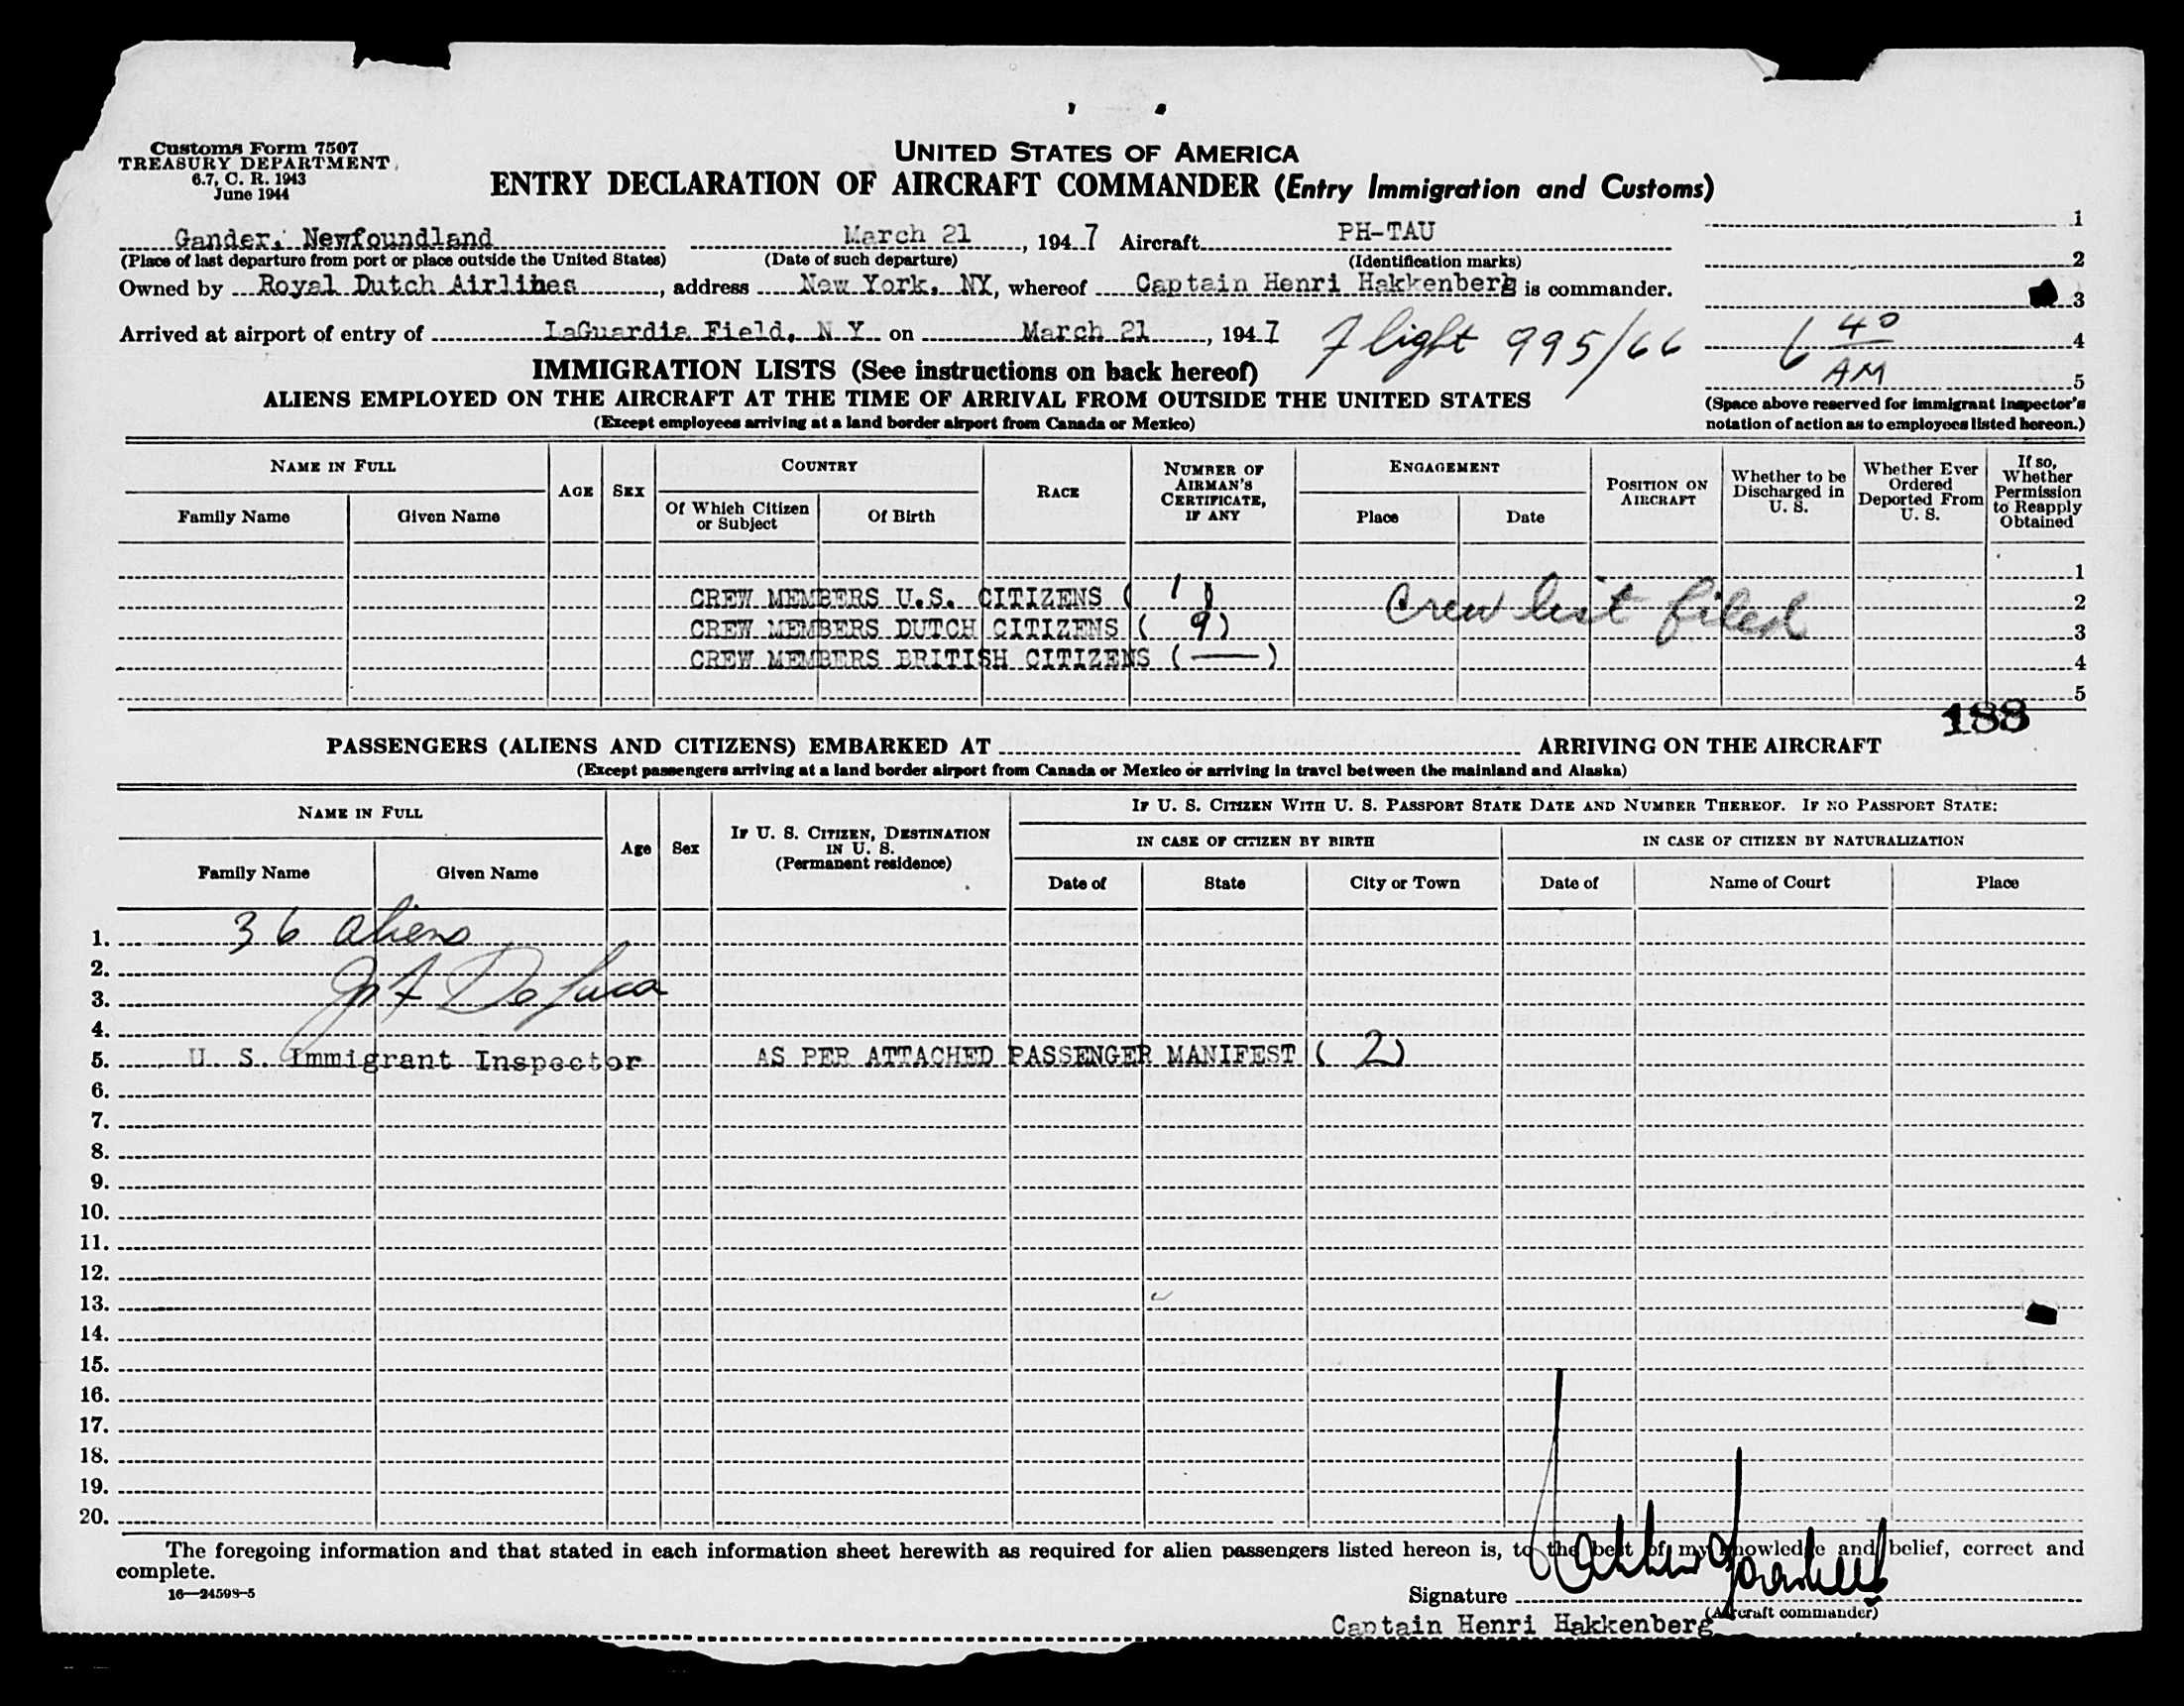 Customs Form 7507
TREASURY DEPARTMENT
6.7, C. R. 1943
June 1944
UNITED STATES OF AMERICA
ENTRY DECLARATION OF AIRCRAFT COMMANDER (Entry Immigration and Customs)
Gander, Newfoundland March 21, 1947 Aircraft PH-TAU 1
(Place of last departure from port or place outside the United States) (Date of such departure) (Identification marks) 2
Owned by Royal Dutch Airlines, address New York, NY, whereof Captain Henri Hakkenberg is commander. 3
Arrived at airport of entry of LaGuardia Field, N Y on March 21, 1947 Flight 995/66 6 40 AM 4
5
IMMIGRATION LISTS (See instructions on back hereof)
ALIENS EMPLOYED ON THE AIRCRAFT AT THE TIME OF ARRIVAL FROM OUTSIDE THE UNITED STATES
(Except employees arriving at a land border airport from Canada or Mexico)
(Space above reserved for immigrant inspector's
notation of action as to employees listed hereon.)
NAME IN FULL
Family Name Given Name
AGE SEX
COUNTRY
Of Which Citizen or Subject
Of Birth
RACE
NUMBER OF AIRMAN'S CERTIFICATE, IF ANY
ENGAGEMENT
Place Date
POSITION ON AIRCRAFT
Whether to be Discharged in U. S.
Whether Ever Ordered Deported From U. S.
If so, Whether Permission to Reapply Obtained
1
CREW MEMBERS U.S. CITIZENS ( 1 ) Crew list filed 2
CREW MEMBERS DUTCH CITIZENS ( 9 ) 3
CREW MEMBERS BRITISH CITIZENS ( — ) 4
5
188
PASSENGERS (ALIENS AND CITIZENS) EMBARKED AT ARRIVING ON THE AIRCRAFT
(Except passengers arriving at a land border airport from Canada or Mexico or arriving in travel between the mainland and Alaska)
NAME IN FULL
Family Name Given Name
Age Sex
IF U. S. CITIZEN, DESTINATION IN U. S.
(Permanent residence)
IF U. S. CITIZEN WITH U. S. PASSPORT STATE DATE AND NUMBER THEREOF. IF NO PASSPORT STATE:
IN CASE OF CITIZEN BY BIRTH IN CASE OF CITIZEN BY NATURALIZATION
Date of State City or Town Date of Name of Court Place
1. 36 aliens
2.
3. De Luca
4.
5. U. S. Immigrant Inspector AS PER ATTACHED PASSENGER MANIFEST ( 2 )
6.
7.
8.
9.
10.
11.
12.
13.
14.
15.
16.
17.
18.
19.
20.
The foregoing information and that stated in each information sheet herewith as required for alien passengers listed hereon is, to the best of my knowledge and belief, correct and
complete.
16—24598-5
Signature
(Aircraft commander)
Captain Henri Hakkenberg